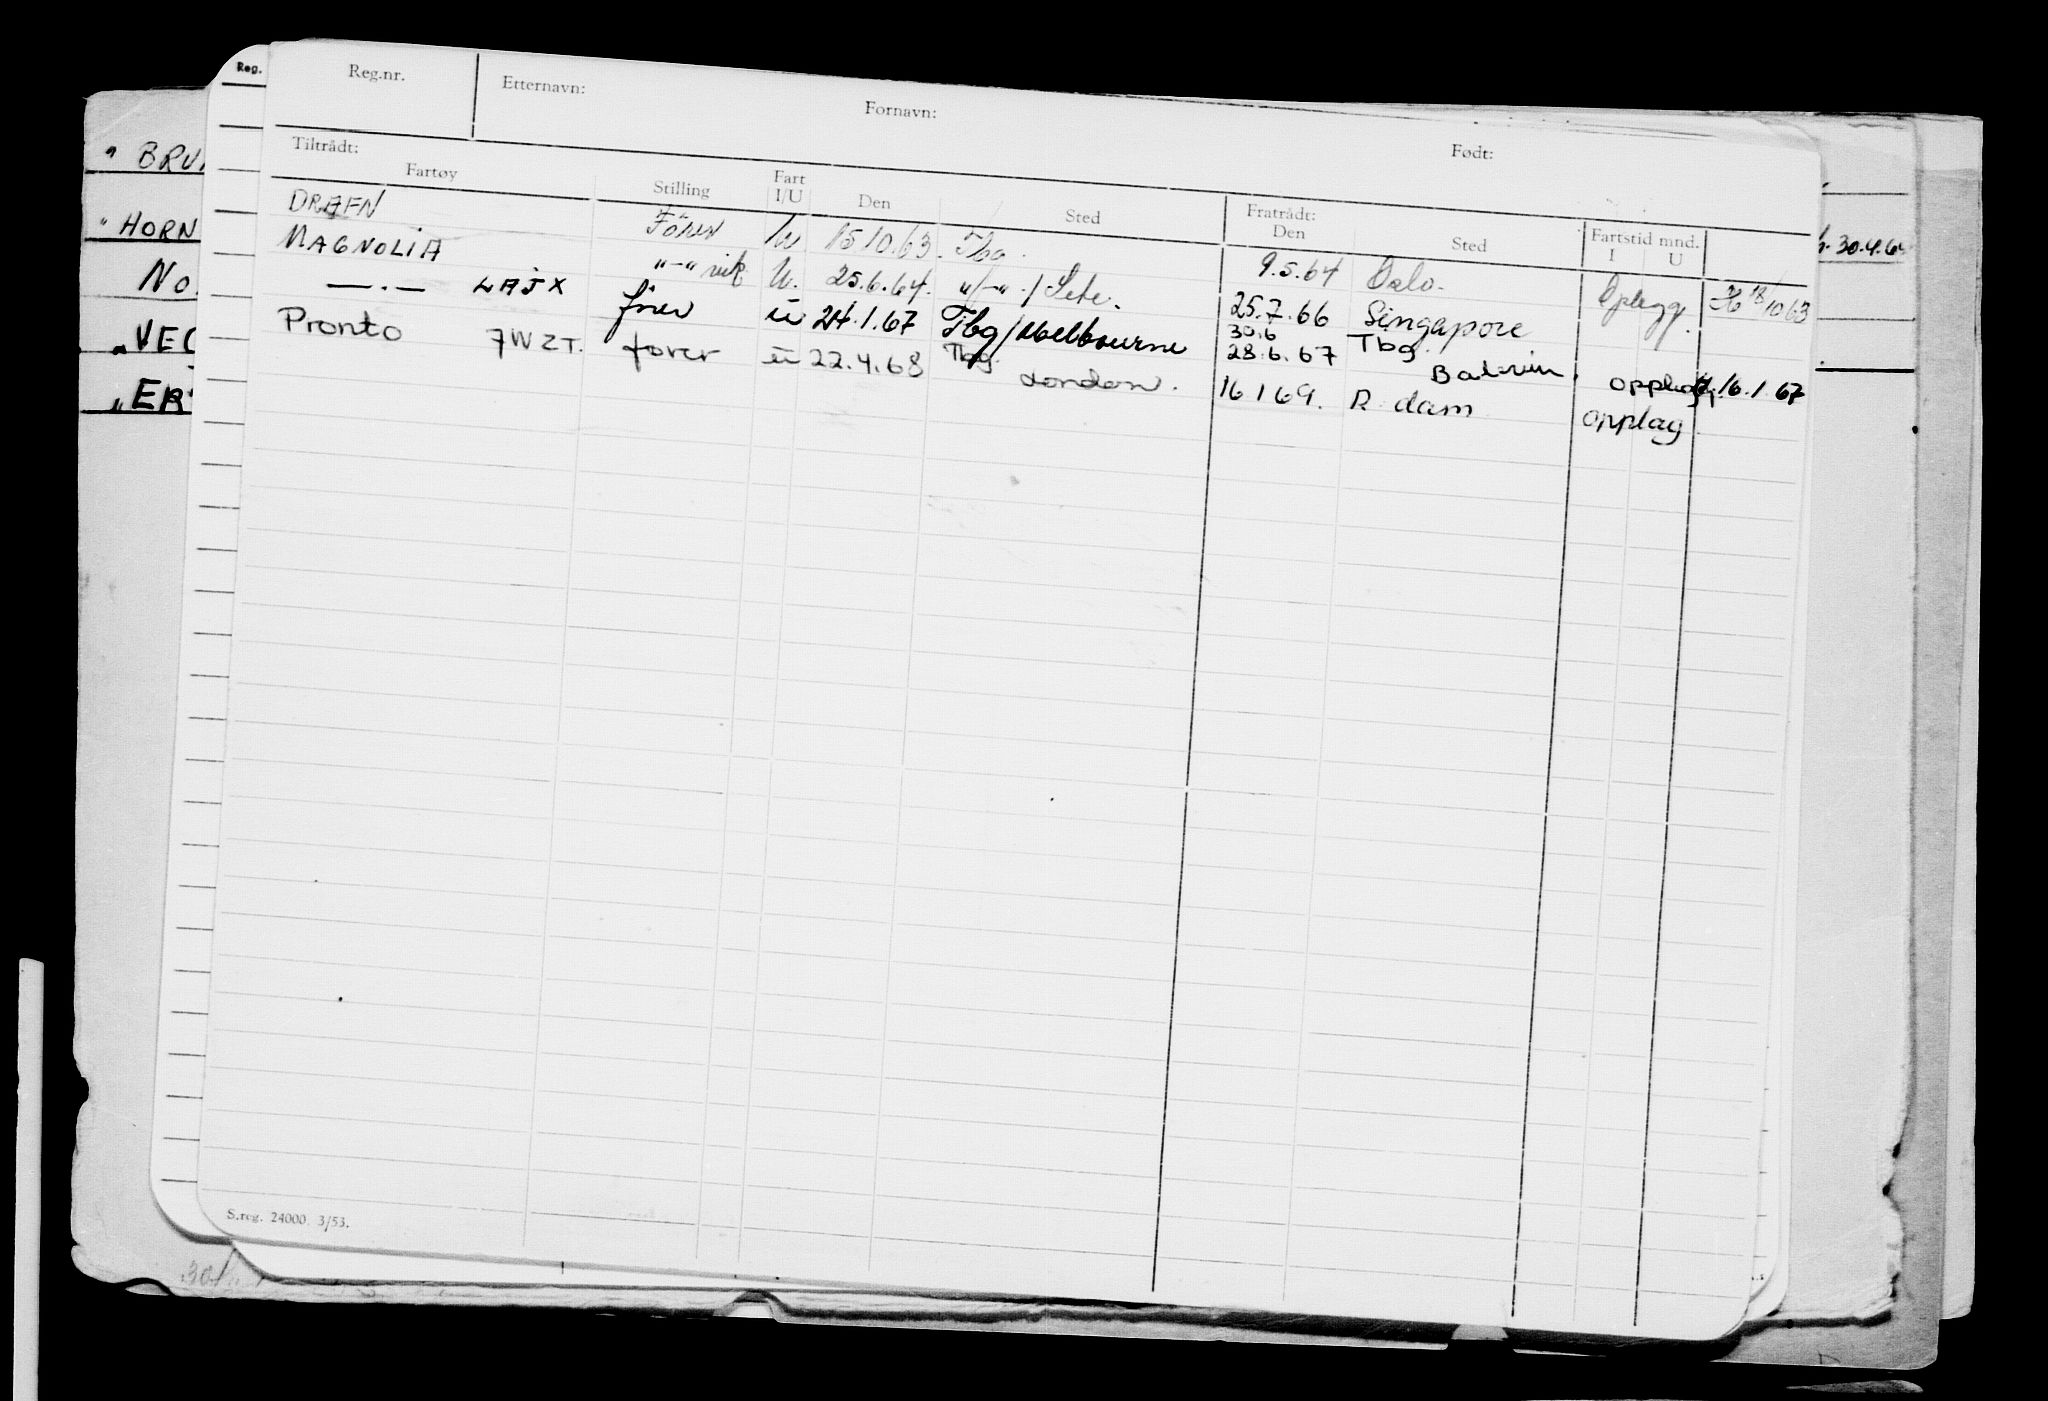 Reg.
Reg.nr. Etternavn: Fornavn: Født:
Tiltrådt: Fratrådt:
Fartøy Stilling Fart I/U Den Sted Den Sted Fartstid mnd. I U
DRAFN Fører U 15 10.63. Tbg. 9.5.64 Oslo. Oplagg. 18/10 63
MAGNOLIA "-" vik. U. 25.6.64. "-" / Sete. 25.7.66 Singapore
—.— LAJX fører u 24.1.67 Tbg/Melbourne 30.6 Tbg.
28.6.67 opplagg. 16.1.67
Pronto 7WZT. fører u 22.4.68 Tbg. London. 16 1 69. R.dam opplag
S.reg. 24000. 3/53.
" BRU
" HORN
No.
"VE
"ER
30.4.6